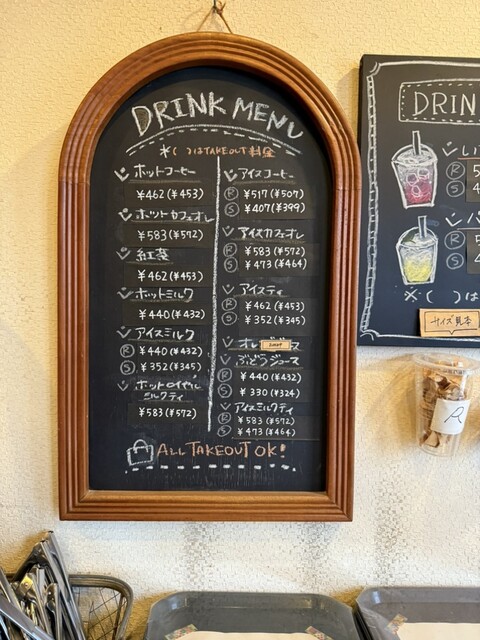 DRINK MENU
※( )はTAKEOUT料金
ホットコーヒー
¥462(¥453)
ホットカフェオレ
¥583(¥572)
紅茶
¥462(¥453)
ホットミルク
¥440(¥432)
アイスミルク
R ¥440(¥432)
S ¥352(¥345)
ホットロイヤル
ミルクティ
¥583(¥572)
アイスコーヒー
R ¥517(¥507)
S ¥407(¥399)
アイスカフェオレ
R ¥583(¥572)
S ¥473(¥464)
アイスティ
R ¥462(¥453)
S ¥352(¥345)
オレ ス
ぶどうジュース
R ¥440(¥432)
S ¥330(¥324)
アイスミルクティ
R ¥583(¥572)
S ¥473(¥464)
ALL TAKEOUT OK!
DRIN
い
R 5
S 4
R 5
S 4
※( )は
サイズ見本
R